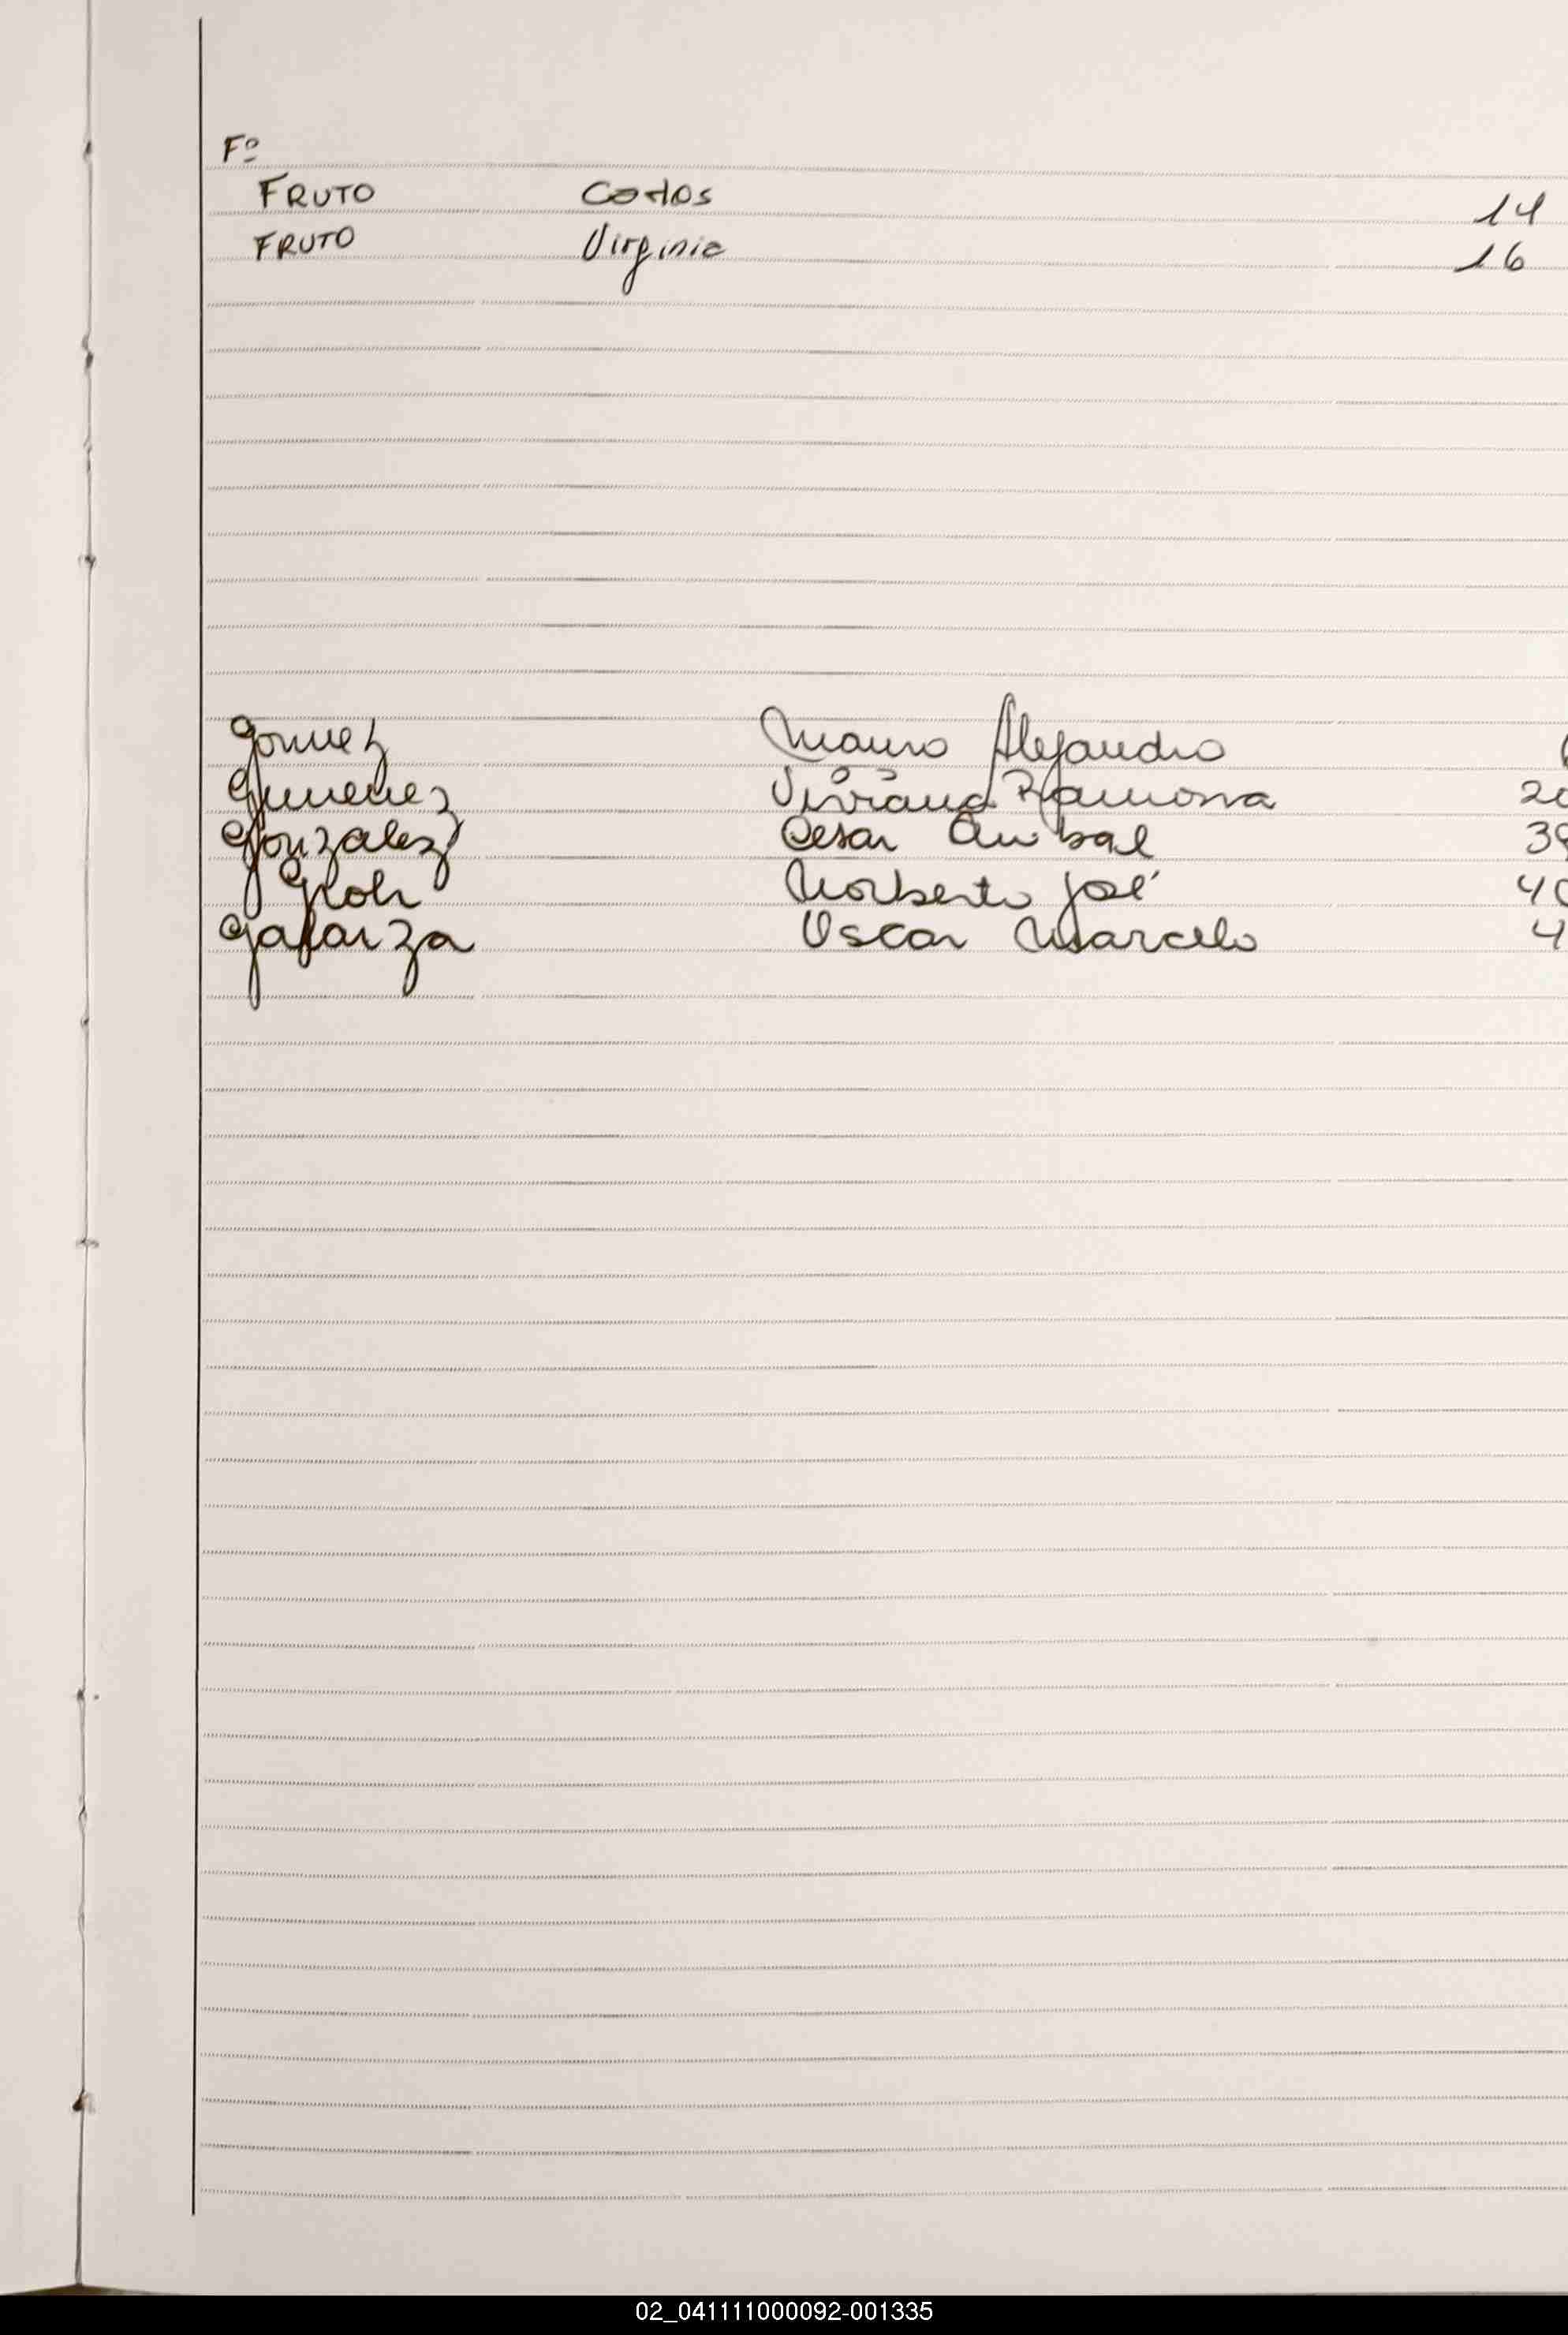 Fº
FRUTO Carlos 14
FRUTO Virginia 16
Gomez Mauro Alejandro
Gimenez Viviana Ramona 20
Gonzalez Cesar Anibal 39
Groh Norberto José 40
Galarza Oscar Marcelo 4
02_041111000092-001335